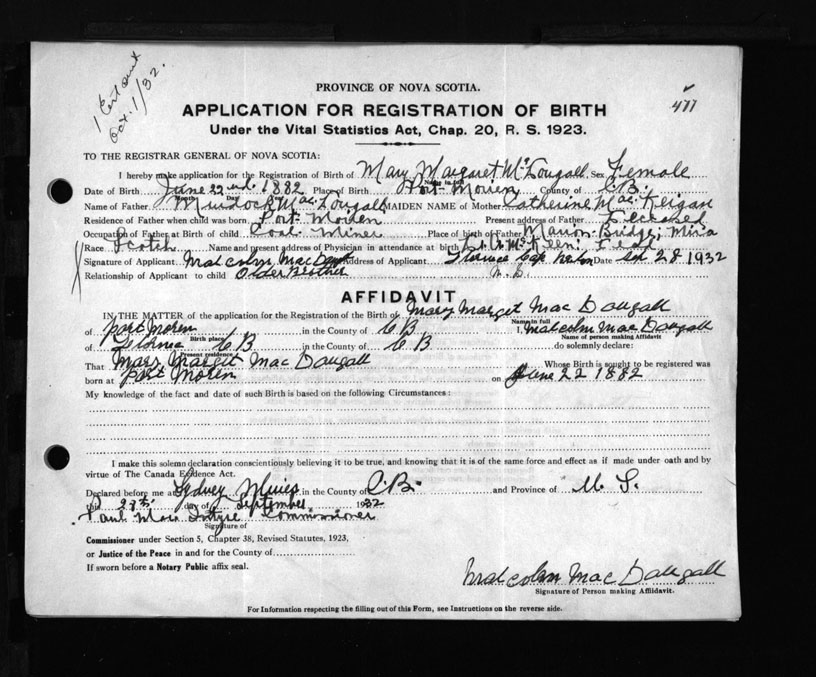 1 Cert sent
Oct. 1/32.
477
PROVINCE OF NOVA SCOTIA.
APPLICATION FOR REGISTRATION OF BIRTH
Under the Vital Statistics Act, Chap. 20, R. S. 1923.
TO THE REGISTRAR GENERAL OF NOVA SCOTIA:
I hereby make application for the Registration of Birth of Mary Margaret McDougall Sex Female
Name in full
Date of Birth June 22nd 1882 Place of Birth Port Morien County of C.B.
Month Day
Name of Father Murdock MacDougall MAIDEN NAME of Mother Catherine Mac
Residence of Father when child was born Port Morien Present address of Father Deceased
Occupation of Father at Birth of child Coal Miner Place of birth of Father Marion Bridge, Mira
Race Scotch Name and present address of Physician in attendance at birth
Signature of Applicant Malcolm Mac Address of Applicant Florence Cape Breton Date Sep 28 1932
Relationship of Applicant to child Older Brother N.S.
AFFIDAVIT
IN THE MATTER of the application for the Registration of the Birth of Mary Marget Mac Dougall
Name in full
of Port Moren in the County of C B I, Malcolm Mac Dougall
Birth place Name of person making Affidavit
of Florence C B in the County of C B do solemnly declare:
Present residence
That Mary Marget Mac Dougall Whose Birth is sought to be registered was
born at Port Moren on June 22 1882
My knowledge of the fact and date of such Birth is based on the following Circumstances:
I make this solemn declaration conscientiously believing it to be true, and knowing that it is of the same force and effect as if made under oath and by
virtue of The Canada Evidence Act.
Declared before me at Sydney Mines in the County of C.B. and Province of N. S.
this 28th day of September 1932
Paul Mac Intyre Commissioner
Signature of
Commissioner under Section 5, Chapter 38, Revised Statutes, 1923,
or Justice of the Peace in and for the County of
If sworn before a Notary Public affix seal.
Malcolm Mac Dougall
Signature of Person making Affidavit.
For Information respecting the filling out of this Form, see Instructions on the reverse side.